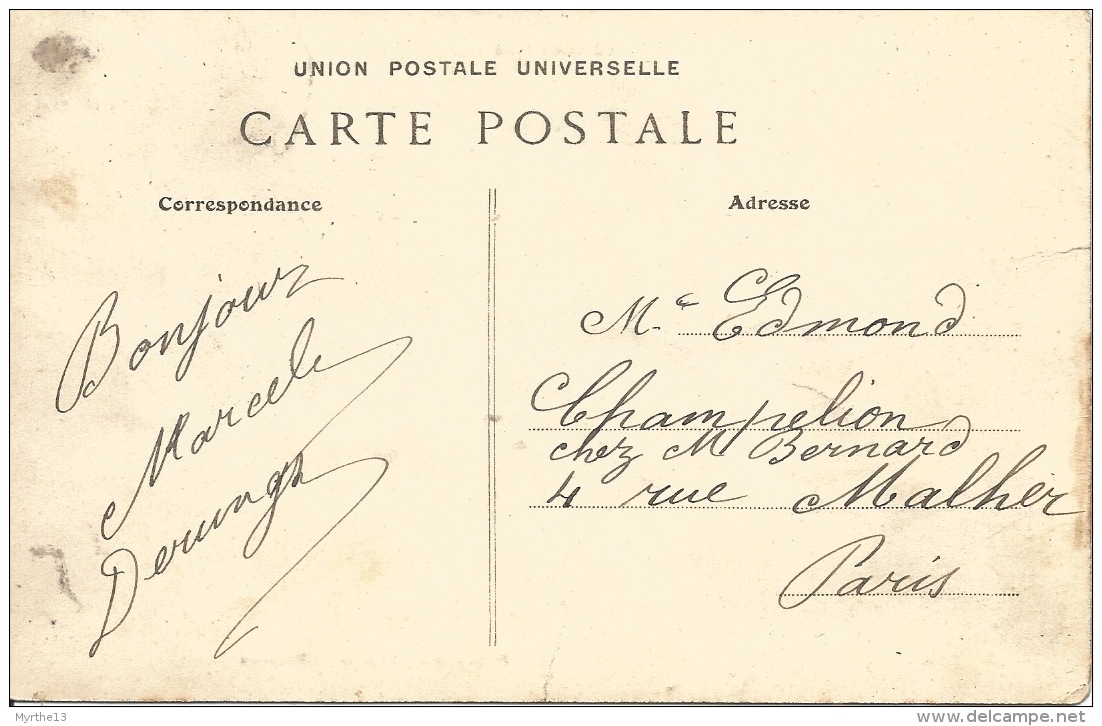 UNION POSTALE UNIVERSELLE
CARTE POSTALE
Correspondance
Adresse
Bonjour
Marcel
Mr Edmond
Champelion
chez M Bernard
4 rue Malher
Paris
Myrthe13
delcampe.net